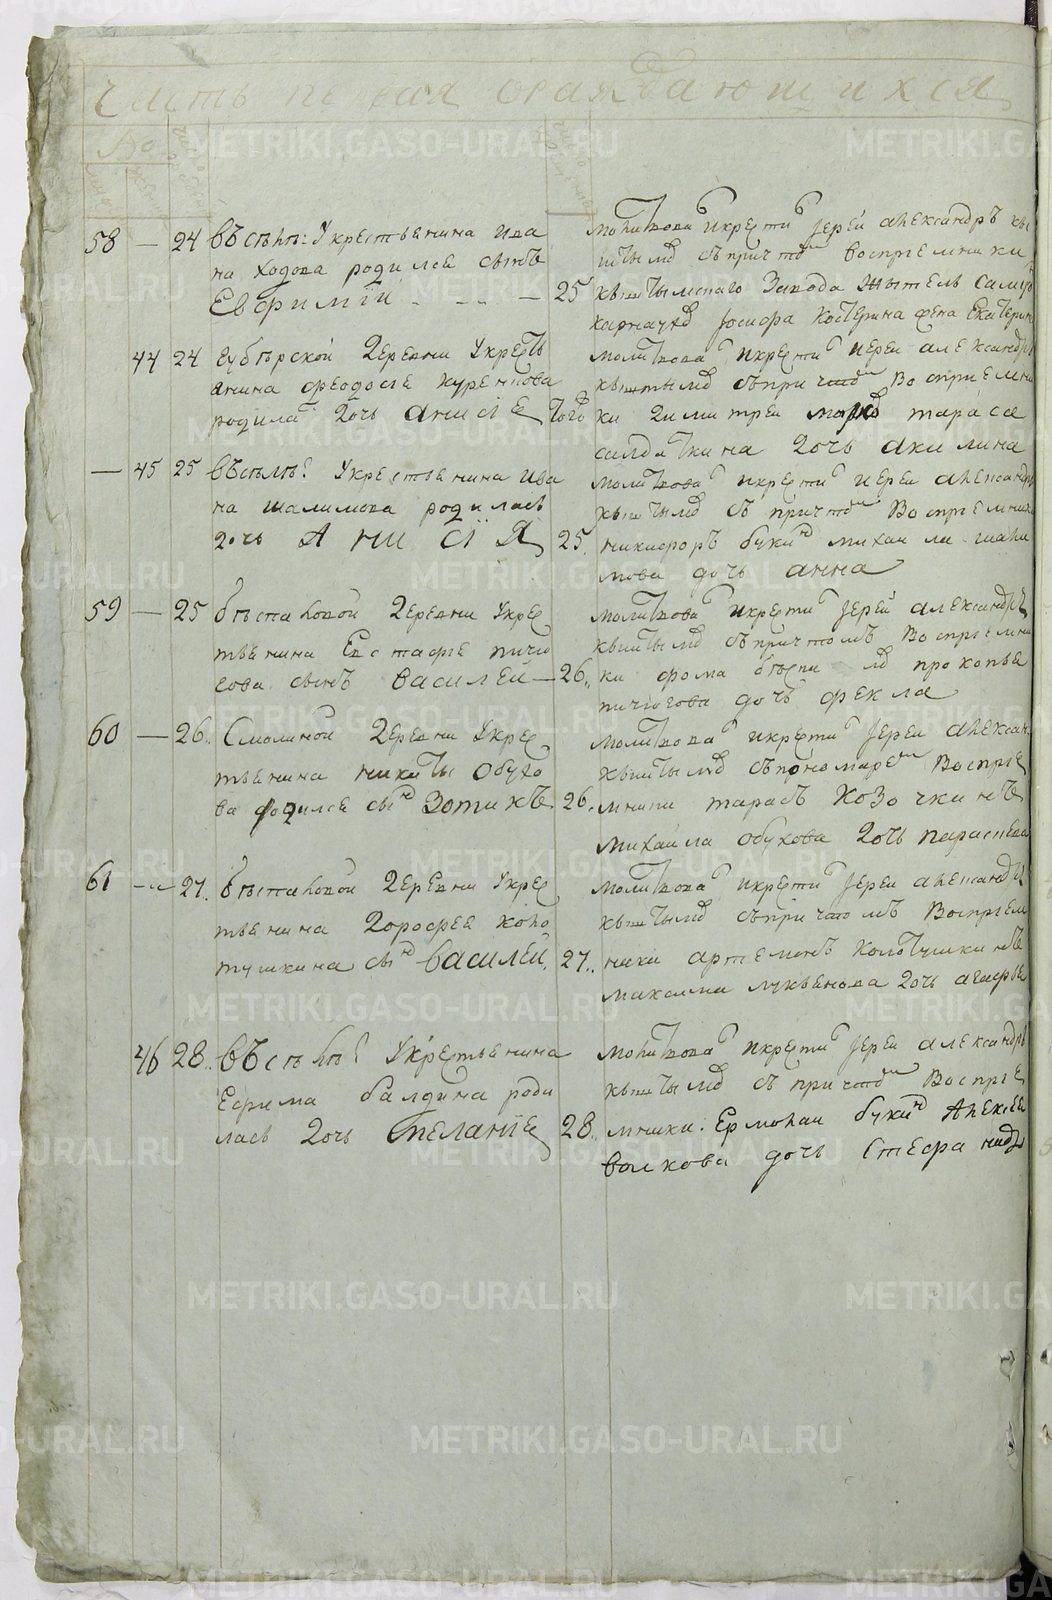 Часть первая о раждающихся
58 — 24 въ селѣ: у крестьянина Ива
на Ходова родился сынъ
Евфимiй — 25
молитвова и крести Iерей Александръ кы
штымо съ причто воспрiемники
кыштымскаго завода житель
Iосифа Костерина жена Екатерин
44 24 деревни у кресть
янина Феодосiя Куренкова
родила дочь Анисiя Того
молитвова и крести иерей Александръ
кыштымо съ причто воспрiемни
ки Димитрей Тараса
дочь Акилина
— 45 25 въ селѣ: у крестьянина Ива
на Шалимова родилась
дочь Анисiя 25.
молитвова и крести иерей Александръ
кыштымо съ причто воспрiемники
никифоръ Михаила Шали
мова дочь Анна
59 — 25 деревни у крес
тьянина Евстафiя Пичю
гова сынъ Василей — 26..
молитвова и крести Iерей Александръ
кыштымо съ причтомъ воспрiемни
ки фома Прокопья
Пичюгова дочь Фекла
60 — 26.. Смолиной деревни у крес
тьянина Никиты Обухо
ва родился сынъ Зотикъ 26.
молитвова и крести Iерей Алексан
кыштымо съ пономаре воспрiе
мники Тарасъ Козочкинъ
Михаила Обухова дочь Параскева
61 — 27.. деревни у крес
тьянина Дорофея Коло
тушкина сынъ Василей 27..
молитвова и крести Iерей Александръ
кыштымо съ причтомъ воспрiем
ники Артемонъ Колотушкинъ
Максима Лукьянова дочь Агафья
46 28.. въ селѣ: у крестьянина
Ефима Балдина роди
лась дочь Меланiя 28..
молитвова и крести Iерей Александръ
кыштымо съ причто воспрiе
мники: Ермолаи Алексея
Волкова дочь Стефанида
METRIKI.GASO-URAL.RU